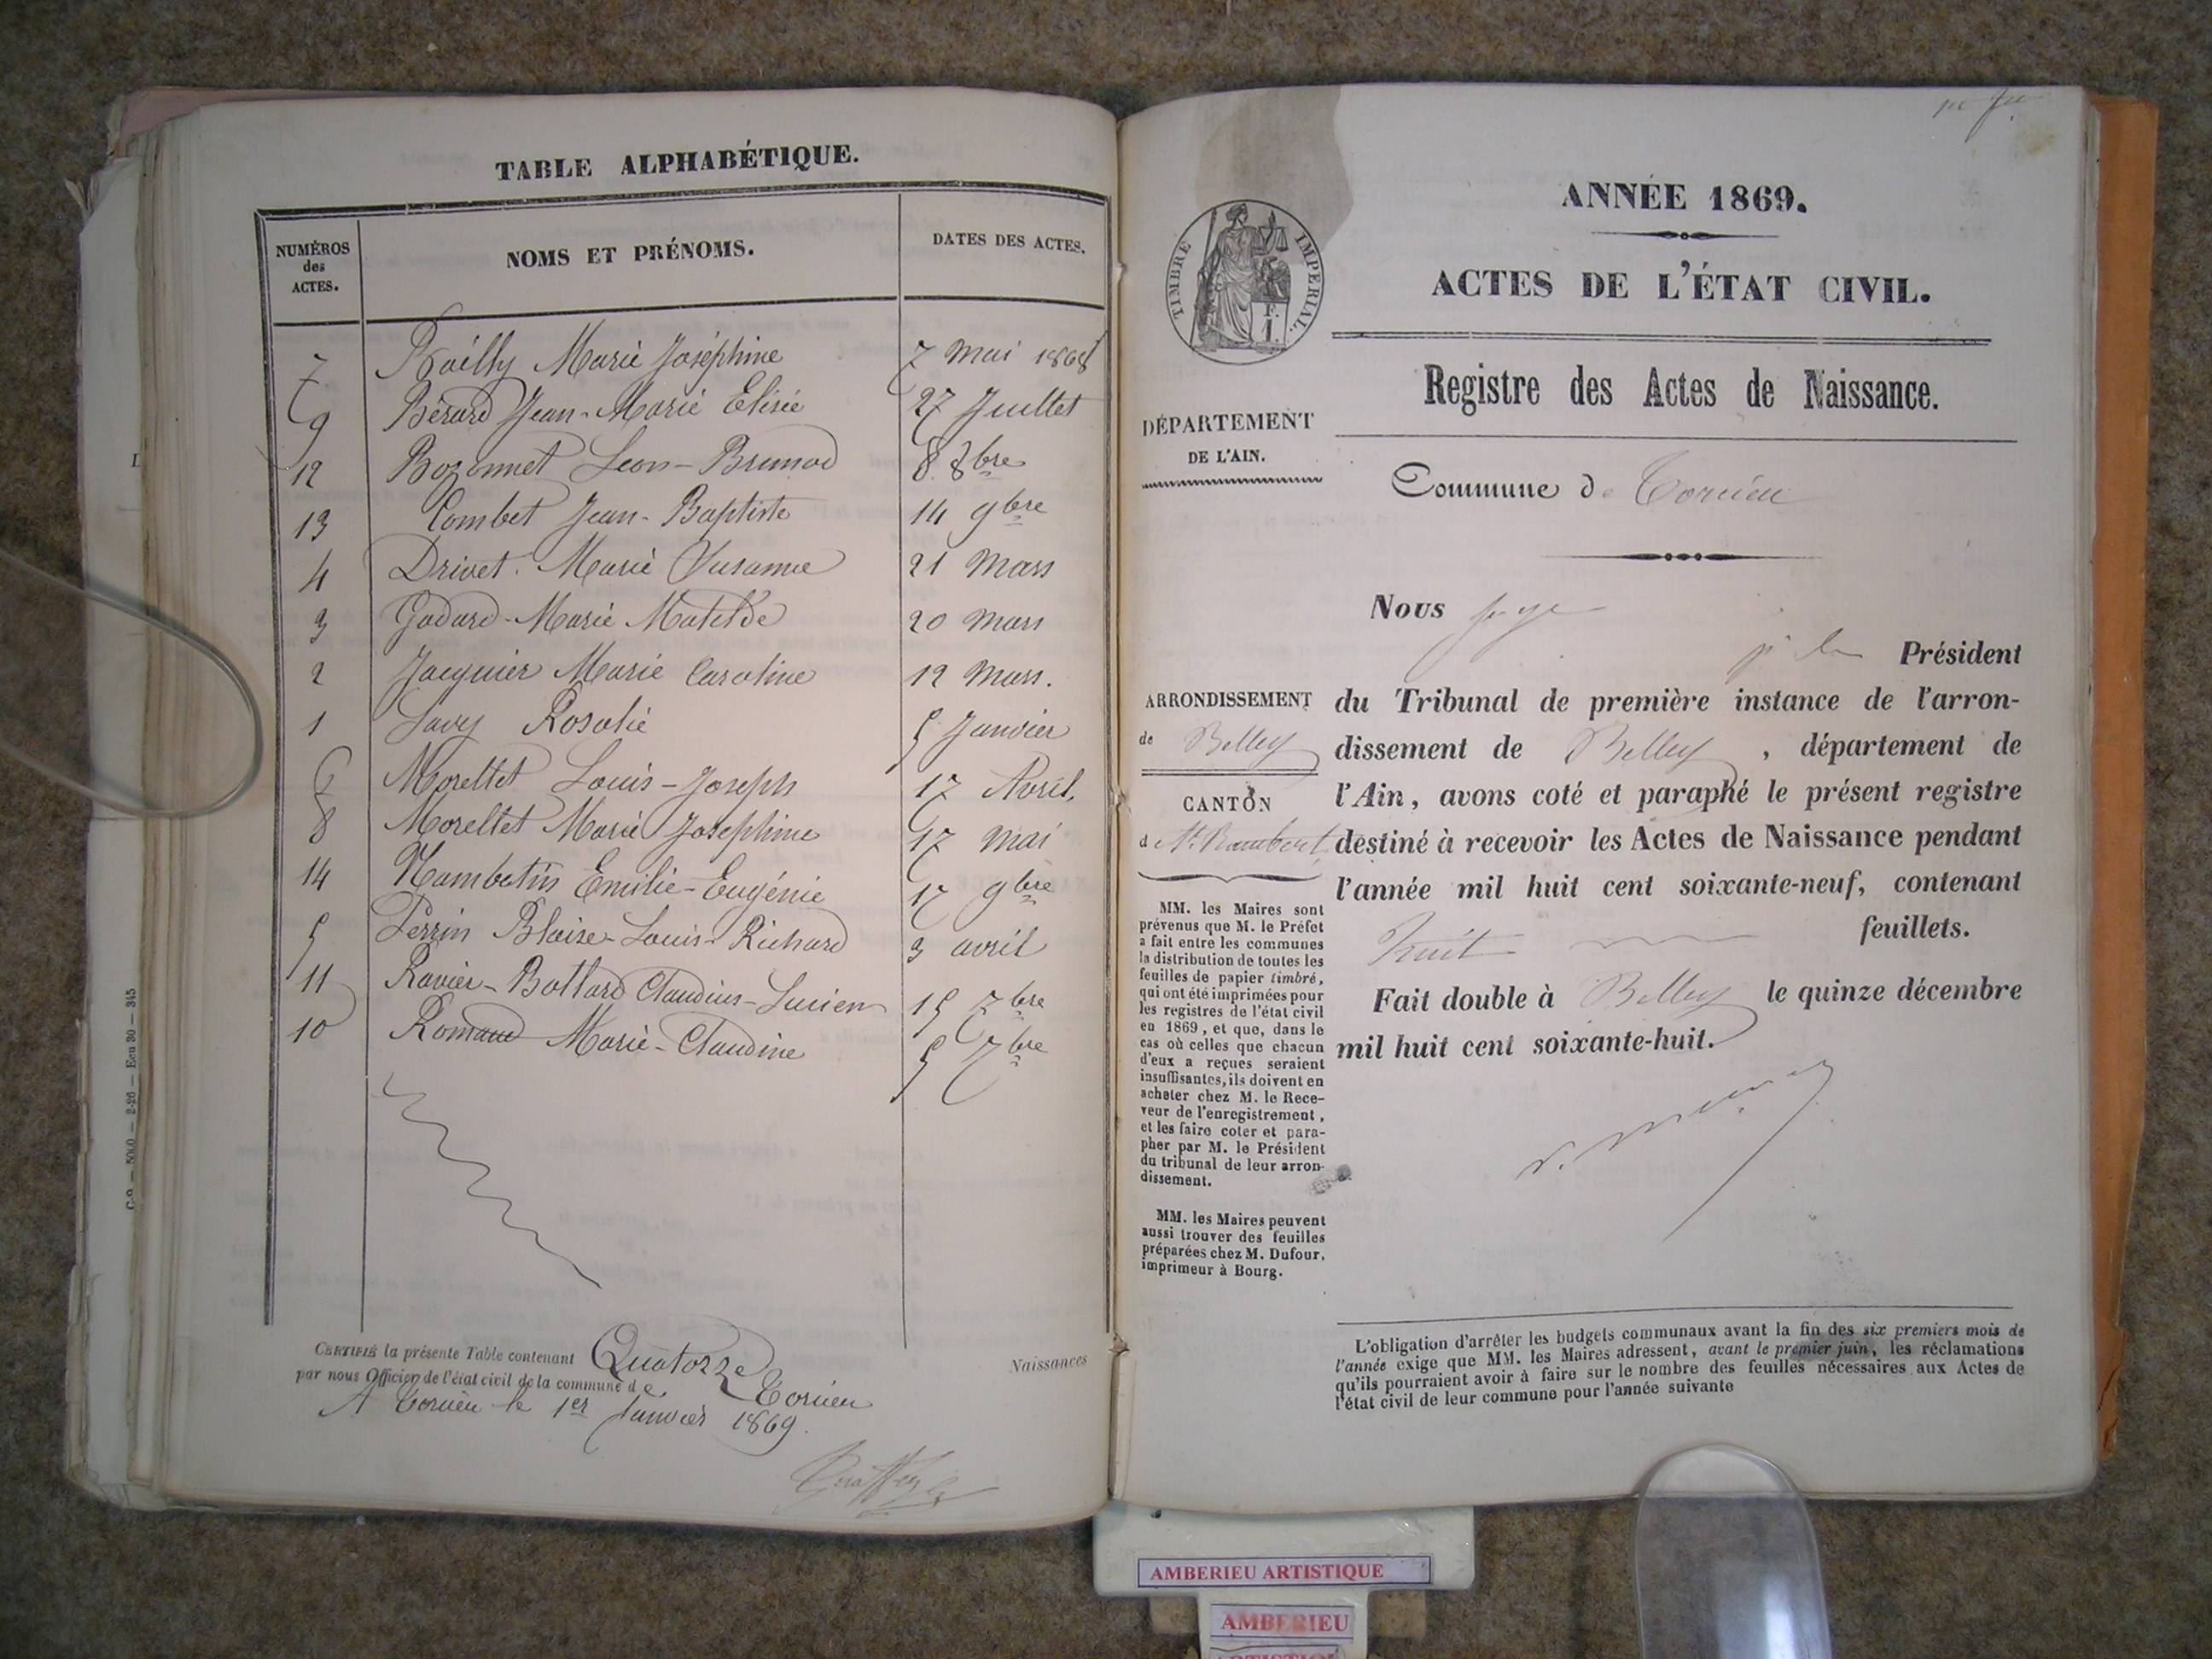 TABLE ALPHABÉTIQUE.
NUMÉROS des ACTES. NOMS ET PRÉNOMS. DATES DES ACTES.
7 Bailly Marie Joséphine 7 Mai 1868
9 Bérard Jean-Marie Elisée 27 Juillet
12 Bozonnet Leon-Brunod 8 8bre
13 Combet Jean-Baptiste 14 9bre
4 Drivet Marie Susanne 21 Mars
3 Godard-Marie Matilde 20 Mars
2 Jacquier Marie Caroline 12 Mars.
1 Savey Rosalie 5 Janvier
6 Morellet Louis-Joseph 17 Avril,
8 Morellet Marie Josephine 17 Mai
14 Nambotin Emilie-Eugénie 17 9bre
5 Perrin Blaise-Louis-Richard 3 avril
11 Ravier-Bottard Claudius-Lucien 15 7bre
10 Romand Marie-Claudine 5 7bre
CERTIFIÉ la présente Table contenant Quatorze Naissances
par nous Officier de l'état civil de la commune de Torcieu
A Torcieu le 1er Janvier 1869.
C-9 — 5000 — 2-26 — Ecu 30 — 345
TIMBRE IMPERIAL.
F. 1
ANNÉE 1869.
ACTES DE L'ÉTAT CIVIL.
Registre des Actes de Naissance.
DÉPARTEMENT
DE L'AIN.
Commune de Torcieu
Nous juge
Président
du Tribunal de première instance de l'arron-
dissement de Belley, département de
l'Ain, avons coté et paraphé le présent registre
destiné à recevoir les Actes de Naissance pendant
l'année mil huit cent soixante-neuf, contenant
huit feuillets.
Fait double à Belley le quinze décembre
mil huit cent soixante-huit.
ARRONDISSEMENT
de Belley
CANTON
de St. Rambert
MM. les Maires sont
prévenus que M. le Préfet
a fait entre les communes
la distribution de toutes les
feuilles de papier timbré,
qui ont été imprimées pour
les registres de l'état civil
en 1869, et que, dans le
cas où celles que chacun
d'eux a reçues seraient
insuffisantes, ils doivent en
acheter chez M. le Rece-
veur de l'enregistrement,
et les faire coter et para-
pher par M. le Président
du tribunal de leur arron-
dissement.
MM. les Maires peuvent
aussi trouver des feuilles
préparées chez M. Dufour,
imprimeur à Bourg.
L'obligation d'arrêter les budgets communaux avant la fin des six premiers mois de
l'année exige que MM. les Maires adressent, avant le premier juin, les réclamations
qu'ils pourraient avoir à faire sur le nombre des feuilles nécessaires aux Actes de
l'état civil de leur commune pour l'année suivante
AMBERIEU ARTISTIQUE
AMBERIEU
ARTISTIQUE